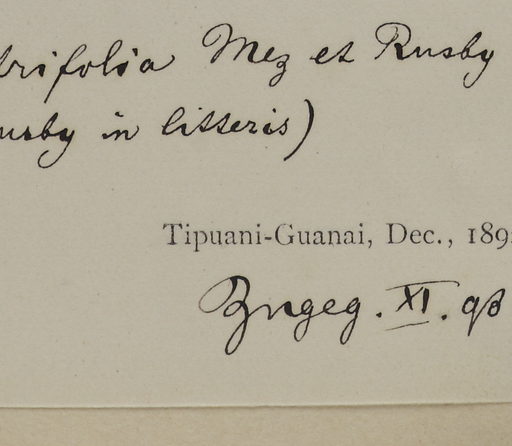 trifolia Mez et Rusby
usby in litteris)
Tipuani-Guanai, Dec., 189
Zugeg. XI. 98